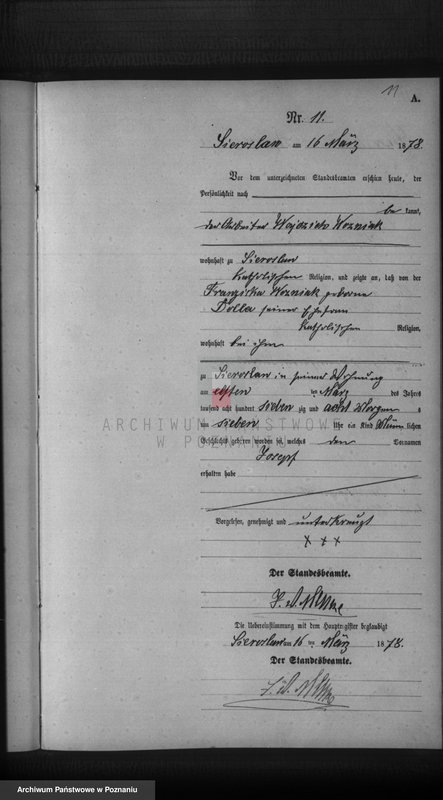 11
A.
Nr. 11.
Sieroslaw am 16 März 1878.
Vor dem unterzeichneten Standesbeamten erschien heute, der
Persönlichkeit nach
be kannt,
der Arbeiter Wojciech Wozniak
wohnhaft zu Sieroslaw
katholischen Religion, und zeigte an, daß von der
Franziska Wozniak geborene
Dolla seiner Ehefrau
katholischen Religion,
wohnhaft bei ihm
zu Sieroslaw in seiner Wohnung
am elften ten März des Jahres
tausend acht hundert sieben zig und acht Morgens
um sieben Uhr ein Kind männlichen
Geschlechts geboren worden sei, welches den Vornamen
Josepf
erhalten habe
Vorgelesen, genehmigt und unterkreuzt
x x x
Der Standesbeamte.
Die Uebereinstimmung mit dem Hauptregister beglaubigt
Sieroslaw am 16 ten März 1878.
Der Standesbeamte.
ARCHIWUM PAŃSTWOWE
W POZNANIU
Archiwum Państwowe w Poznaniu